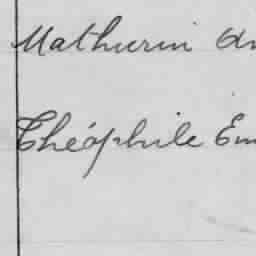 Mathurin
Théophile